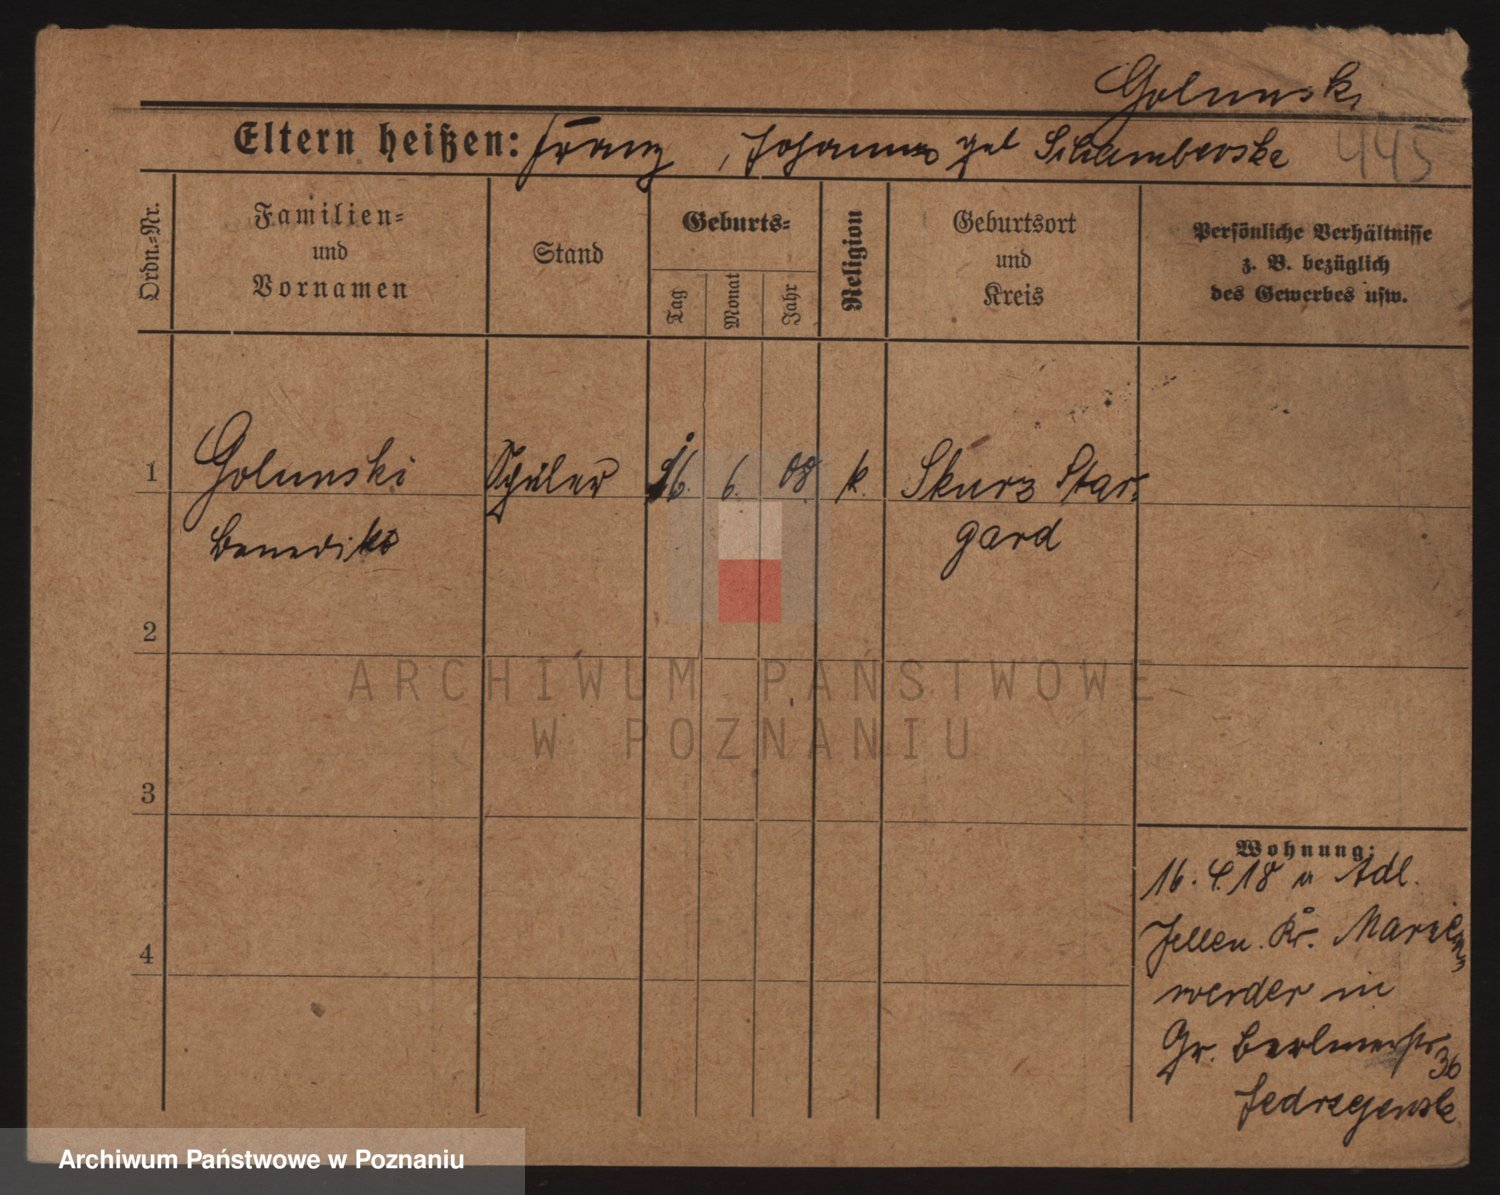 Golunski
Eltern heißen: Franz, Johanna geb Schamberska
445
Ordn.=Nr.
Familien=
und
Vornamen
Stand
Geburts=
Tag
Monat
Jahr
Religion
Geburtsort
und
Kreis
Persönliche Verhältnisse
z. B. bezüglich
des Gewerbes usw.
1 Golunski Schüler 16. 6. 08 k. Skurz Star-
Benedikt gard
2
ARCHIWUM PAŃSTWOWE
W POZNANIU
3
Wohnung:
16. 4. 18 v Adl.
Jellen. Kr. Marien
4
werder in
Gr. Berlinerstr
36
Archiwum Państwowe w Poznaniu